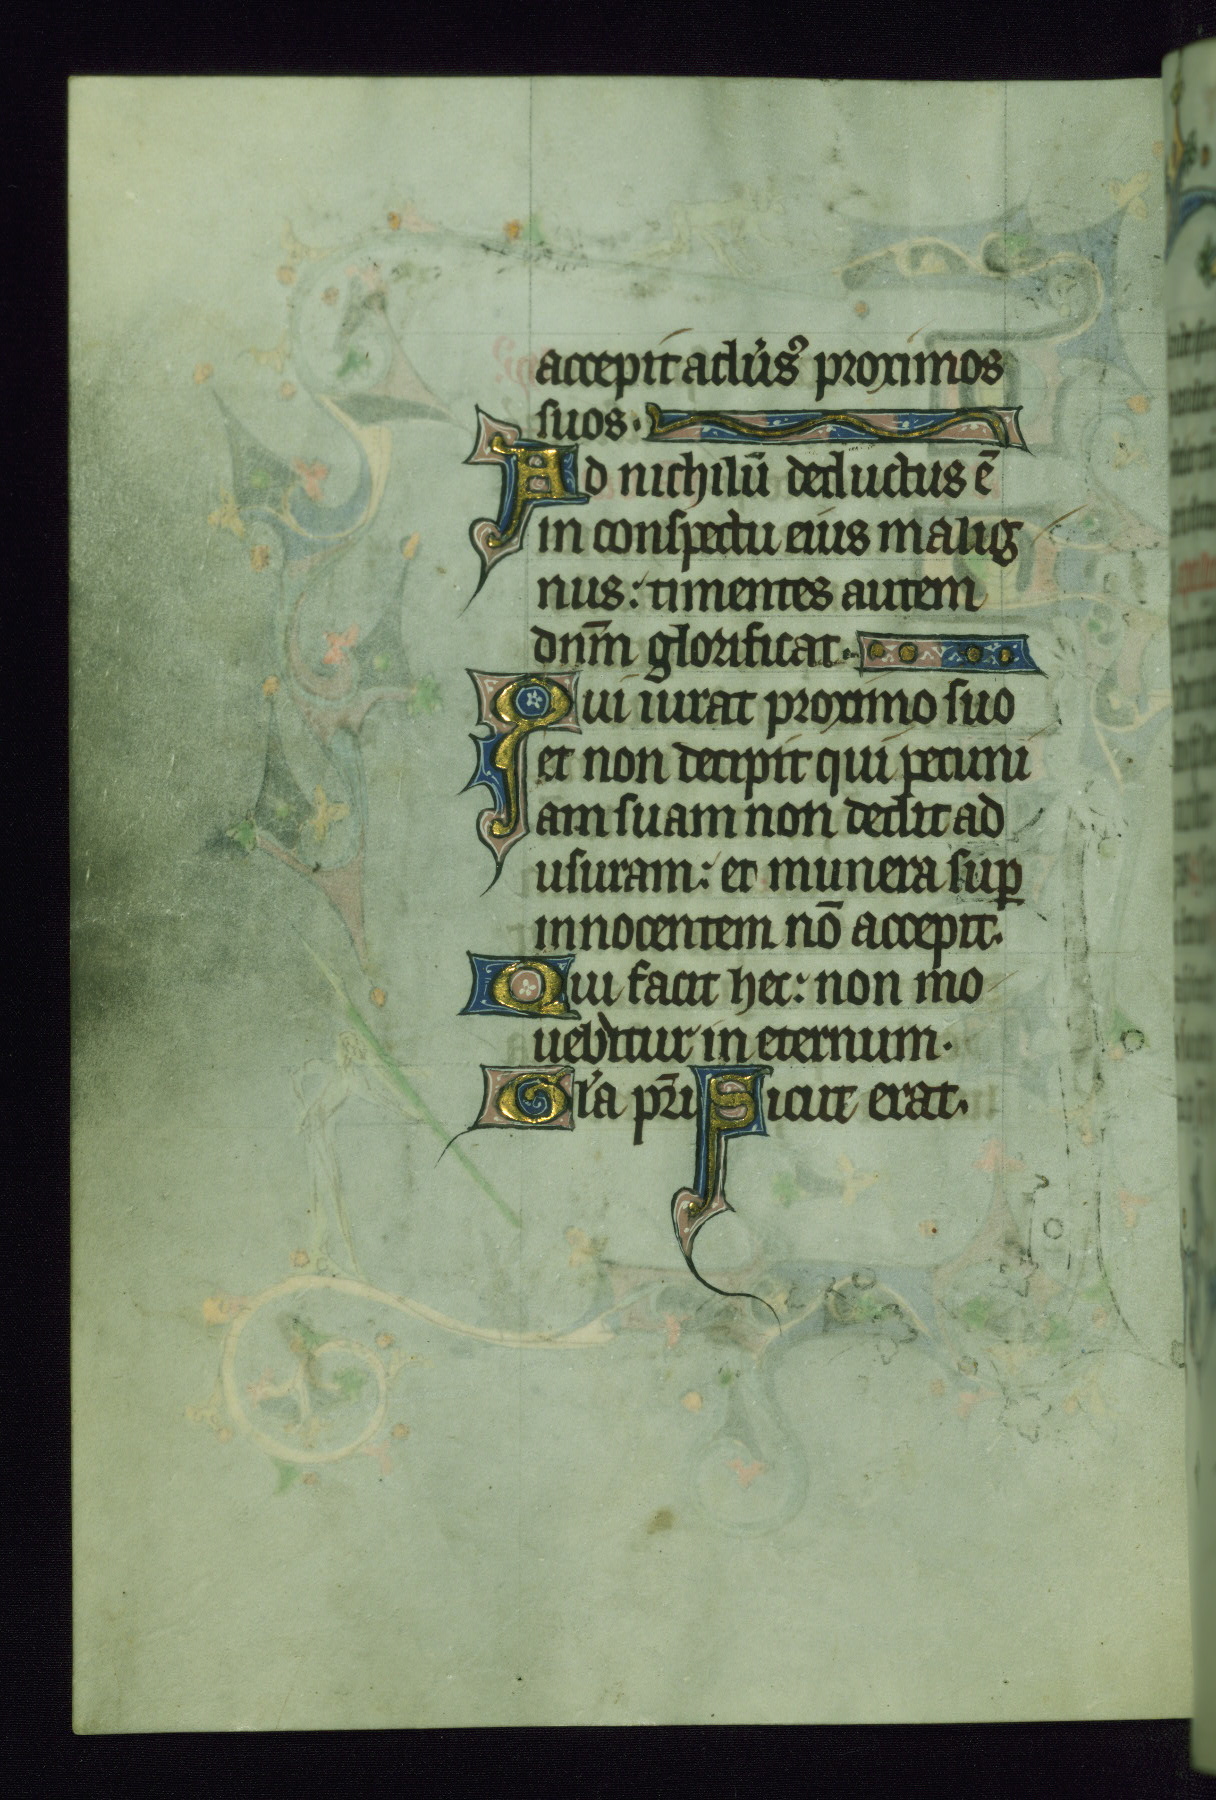 accepit adũsꝰ proximos
suos.
Ad nichilū deductus ē
in conspectu eius malig
nus: timentes autem
dnm̄ glorificat.
Qui iurat proximo suo
et non decipit qui pecuni
am suam non dedit ad
usuram: et munera suꝑ
innocentem nō accepit.
Qui facit hec: non mo
uebitur in eternum.
Gl'a pr̄i Sicut erat.